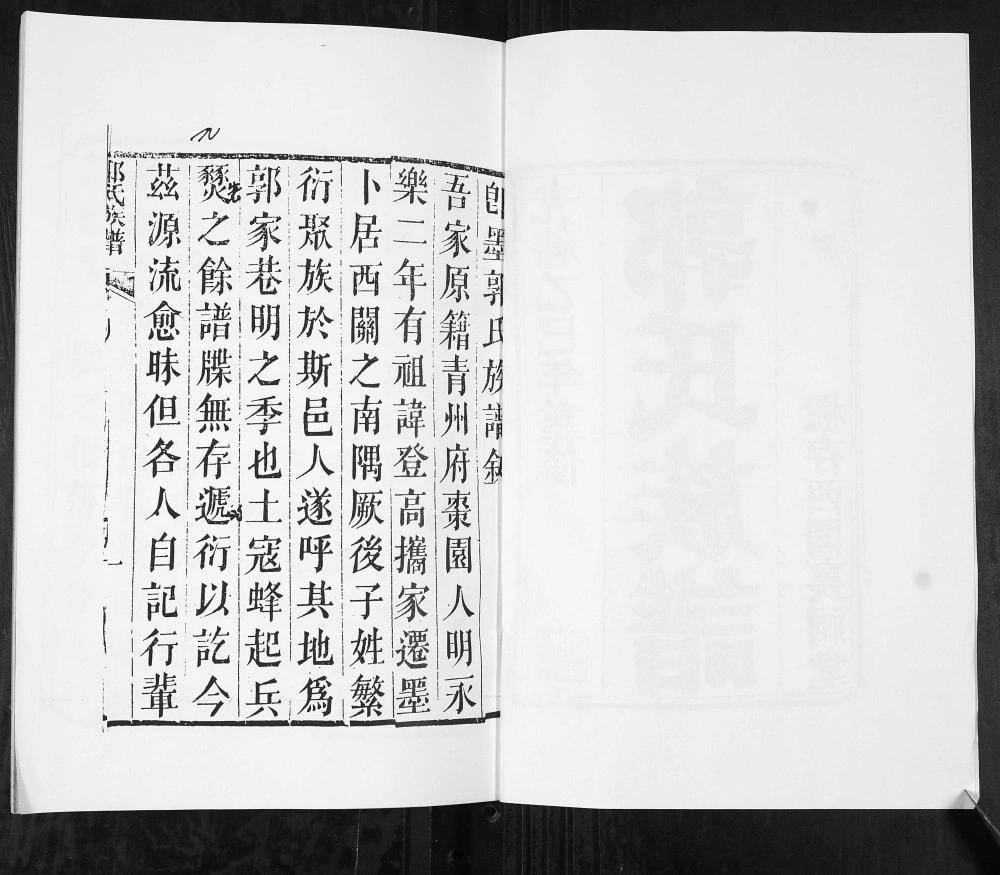 即墨郭氏族譜敘
吾家原籍青州府棗園人明永
樂二年有祖諱登高攜家遷墨
卜居西關之南隅厥後子姓繁
衍聚族於斯邑人遂呼其地爲
郭家巷明之季也土寇蜂起兵
燹之餘譜牒無存遞衍以訖今
茲源流愈昧但各人自記行輩
郭氏族譜
一